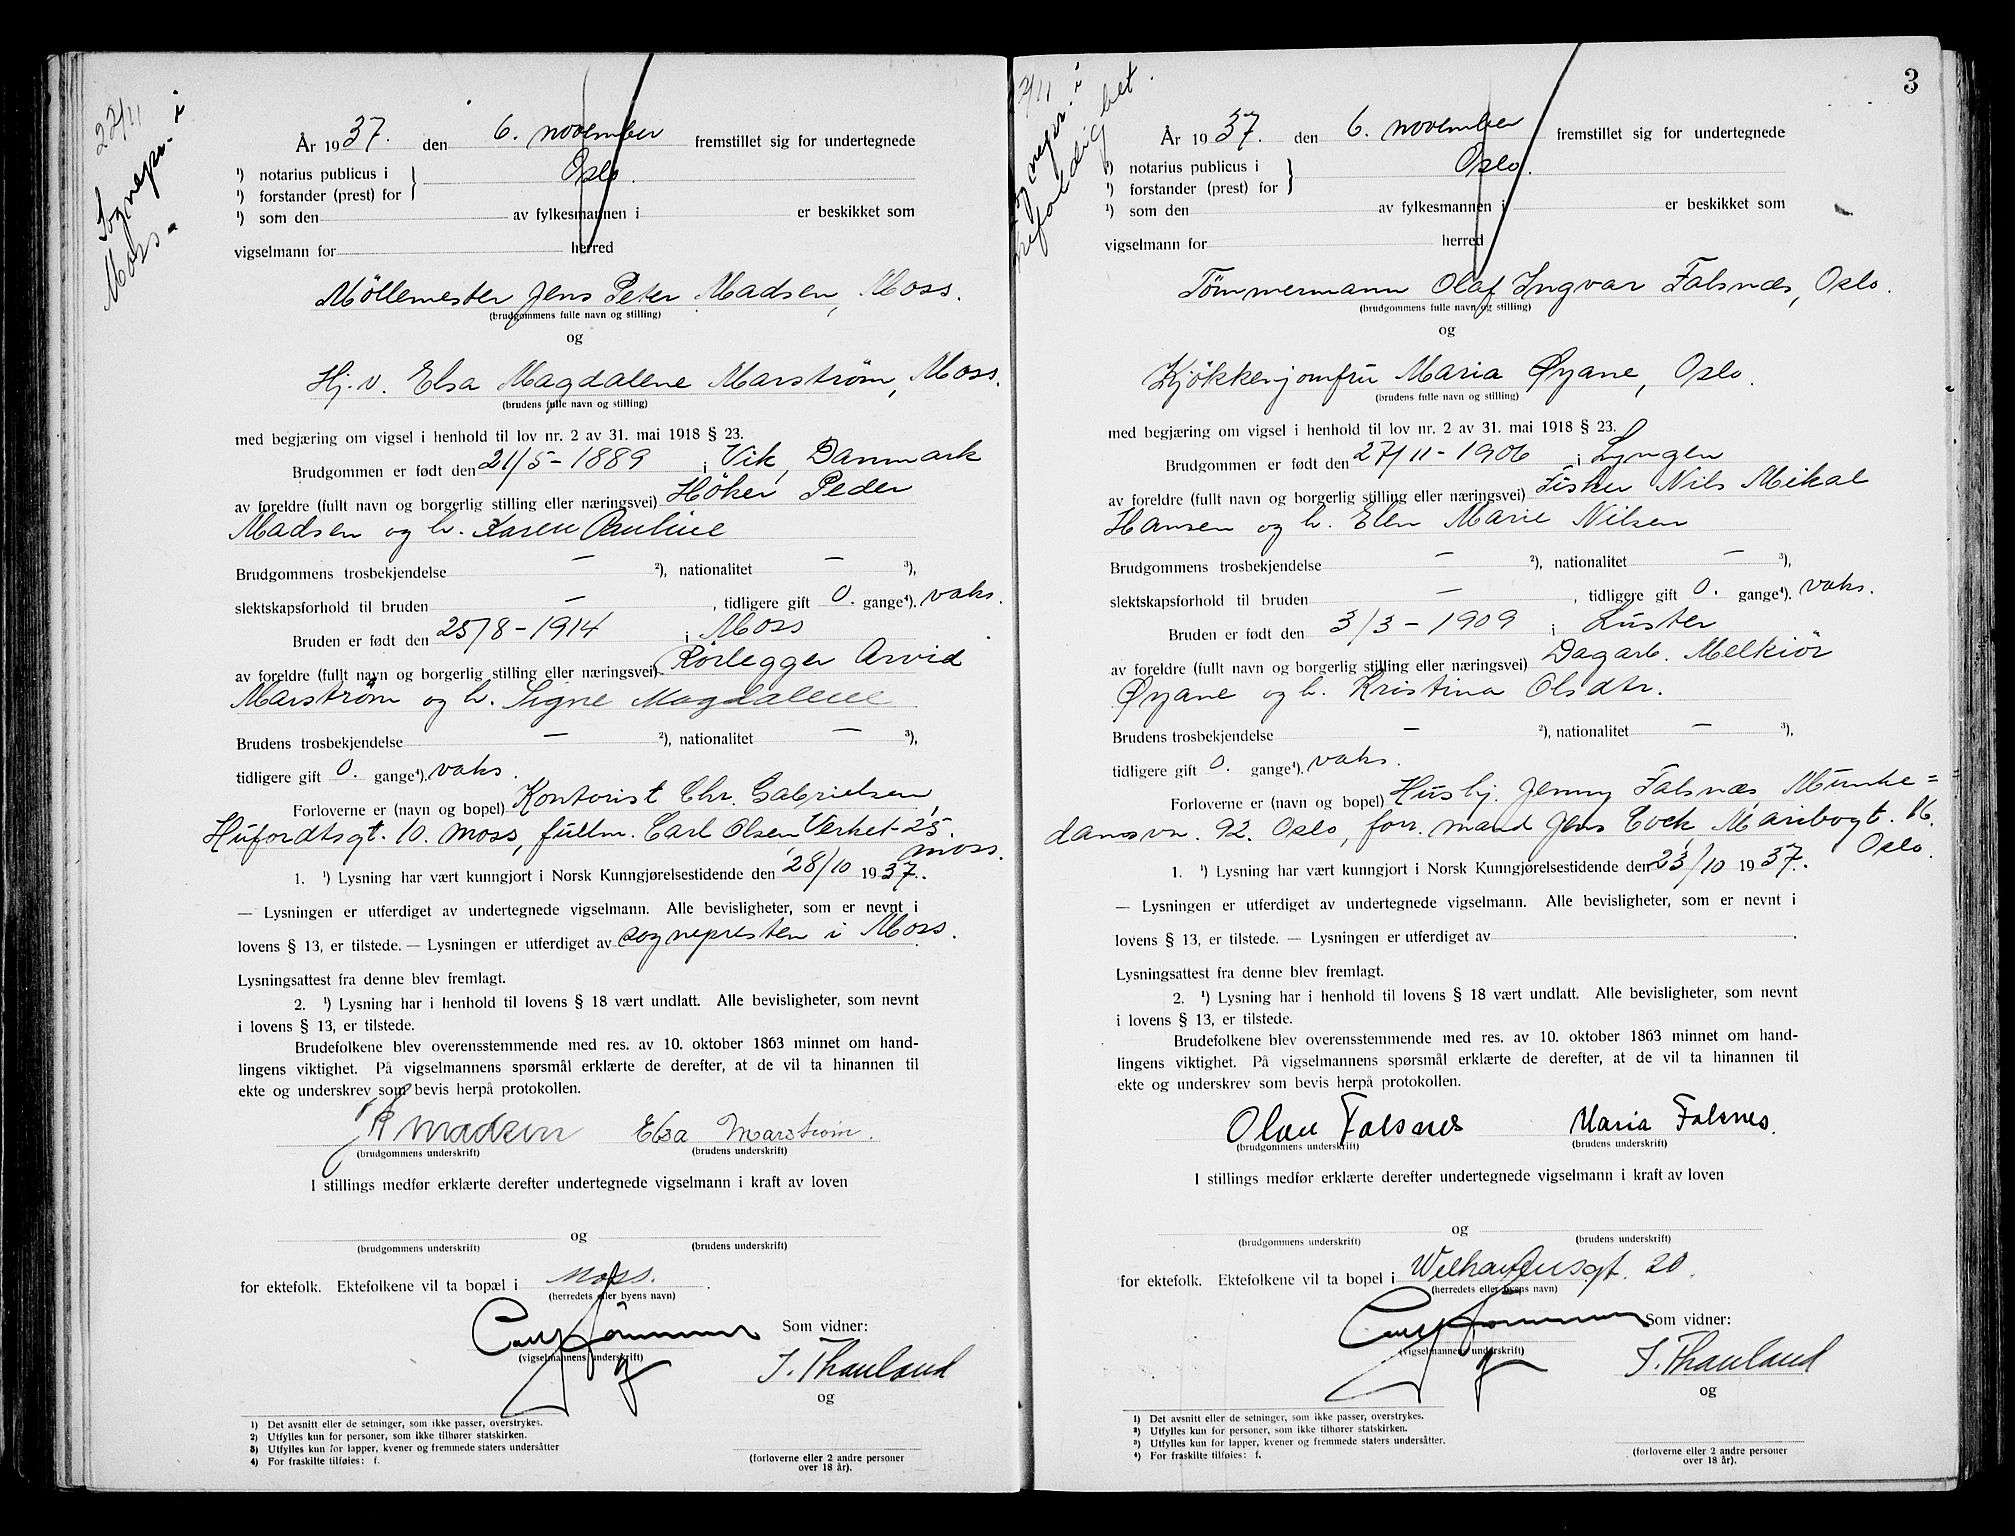 22/11
Sognepr. i
Moss.
År 1937. den 6. november fremstillet sig for undertegnede
¹) notarius publicus i } Oslo.
¹) forstander (prest) for
¹) som den av fylkesmannen i er beskikket som
vigselmann for herred
Møllemester Jens Peter Madsen, Moss.
(brudgommens fulle navn og stilling)
og
Hj.v. Elsa Magdalene Marstrøm, Moss.
(brudens fulle navn og stilling)
med begjæring om vigsel i henhold til lov nr. 2 av 31. mai 1918 § 23.
Brudgommen er født den 21/5-1889 i Vik, Danmark
av foreldre (fullt navn og borgerlig stilling eller næringsvei) Høker Peder
Madsen og h. Karen Pauline
Brudgommens trosbekjendelse — ²), nationalitet — ³),
slektskapsforhold til bruden — , tidligere gift 0. gange⁴). vaks.
Bruden er født den 25/8-1914 i Moss
av foreldre (fullt navn og borgerlig stilling eller næringsvei) Rørlegger Arvid
Marstrøm og h. Signe Magdalene
Brudens trosbekjendelse — ²), nationalitet — ³),
tidligere gift 0. gange⁴). vaks.
Forloverne er (navn og bopel) Kontorist Chr. Gabrielsen,
Hufordtsgt. 10. Moss, fullm. Carl Olsen Verket 25.
Moss.
1. ¹) Lysning har vært kunngjort i Norsk Kunngjørelsestidende den 28/10 1937.
— Lysningen er utferdiget av undertegnede vigselmann. Alle bevisligheter, som er nevnt i
lovens § 13, er tilstede. — Lysningen er utferdiget av sognepresten i Moss.
Lysningsattest fra denne blev fremlagt.
2. ¹) Lysning har i henhold til lovens § 18 vært undlatt. Alle bevisligheter, som nevnt
i lovens § 13, er tilstede.
Brudefolkene blev overensstemmende med res. av 10. oktober 1863 minnet om hand-
lingens viktighet. På vigselmannens spørsmål erklærte de derefter, at de vil ta hinannen til
ekte og underskrev som bevis herpå protokollen.
Madsen Elsa Marstrøm.
(brudgommens underskrift) (brudens underskrift)
I stillings medfør erklærte derefter undertegnede vigselmann i kraft av loven
og
(brudgommens underskrift) (brudens underskrift)
for ektefolk. Ektefolkene vil ta bopæl i Moss.
(herredets eller byens navn)
Som vidner:
(vigselmannens underskrift)
J. Thauland
og
¹) Det avsnitt eller de setninger, som ikke passer, overstrykes.
²) Utfylles kun for personer, som ikke tilhører statskirken.
³) Utfylles kun for lapper, kvener og fremmede staters undersåtter
⁴) For fraskilte tilføies: f.
(forloverne eller 2 andre personer
over 18 år).
3
2/11
År 1937. den 6. november fremstillet sig for undertegnede
¹) notarius publicus i } Oslo.
¹) forstander (prest) for
¹) som den av fylkesmannen i er beskikket som
vigselmann for herred
Tømmermann Olaf Ingvar Falsnæs, Oslo.
(brudgommens fulle navn og stilling)
og
Kjøkkenjomfru Maria Øyane, Oslo.
(brudens fulle navn og stilling)
med begjæring om vigsel i henhold til lov nr. 2 av 31. mai 1918 § 23.
Brudgommen er født den 27/11-1906 i Lyngen
av foreldre (fullt navn og borgerlig stilling eller næringsvei) Fisker Nils Mikal
Hansen og h. Elen Marie Nilsen
Brudgommens trosbekjendelse — ²), nationalitet — ³),
slektskapsforhold til bruden — , tidligere gift 0. gange⁴). vaks.
Bruden er født den 3/3-1909 i Luster
av foreldre (fullt navn og borgerlig stilling eller næringsvei) Dagarb. Melkiör
Øyane og h. Kristina Olsdtr.
Brudens trosbekjendelse — ²), nationalitet — ³),
tidligere gift 0. gange⁴). vaks.
Forloverne er (navn og bopel) Husbj. Jenny Falsnæs Munke=
damsvn. 92. Oslo, forr. mand Jens Cock Maribogt. 16.
Oslo.
1. ¹) Lysning har vært kunngjort i Norsk Kunngjørelsestidende den 23/10 1937.
— Lysningen er utferdiget av undertegnede vigselmann. Alle bevisligheter, som er nevnt i
lovens § 13, er tilstede. — Lysningen er utferdiget av
Lysningsattest fra denne blev fremlagt.
2. ¹) Lysning har i henhold til lovens § 18 vært undlatt. Alle bevisligheter, som nevnt
i lovens § 13, er tilstede.
Brudefolkene blev overensstemmende med res. av 10. oktober 1863 minnet om hand-
lingens viktighet. På vigselmannens spørsmål erklærte de derefter, at de vil ta hinannen til
ekte og underskrev som bevis herpå protokollen.
Olav Falsnes Maria Falsnes.
(brudgommens underskrift) (brudens underskrift)
I stillings medfør erklærte derefter undertegnede vigselmann i kraft av loven
og
(brudgommens underskrift) (brudens underskrift)
for ektefolk. Ektefolkene vil ta bopel i Welhavensgt. 20.
(herredets eller byens navn)
Som vidner:
(vigselmannens underskrift)
J. Thauland
og
¹) Det avsnitt eller de setninger, som ikke passer, overstrykes.
²) Utfylles kun for personer, som ikke tilhører statskirken.
³) Utfylles kun for lapper, kvener og fremmede staters undersåtter.
⁴) For fraskilte tilføies: f.
(forloverne eller 2 andre personer
over 18 år).